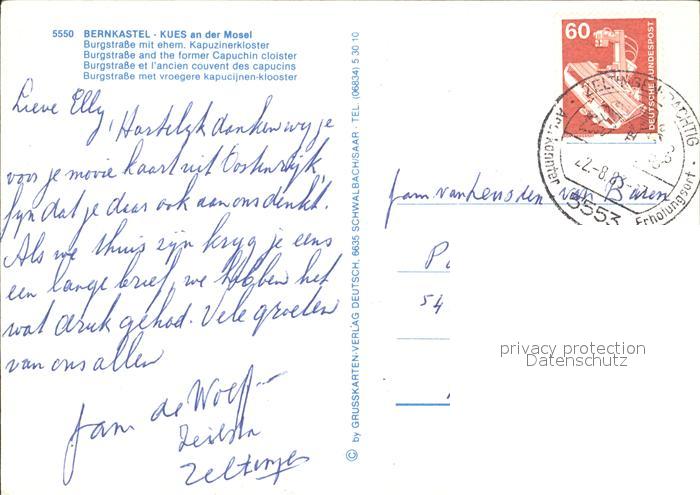 5550 BERNKASTEL - KUES an der Mosel
Burgstraße mit ehem. Kapuzinerkloster
Burgstraße and the former Capuchin cloister
Burgstraße et l'ancien couvent des capucins
Burgstraße met vroegere kapucijnen-klooster
Lieve Elly,
Hartelyk danken wy je
voor je mooie kaart uit Oostenrijk,
fyn dat je daar ook aan ons denkt.
Als we thuis zyn kryg je eens
een lange brief, we hebben het
wat druk gehad. Vele groeten
van ons allen
fam de Wolf
Zeltingen
© by GRUSSKARTEN-VERLAG DEUTSCH, 6635 SCHWALBACH/SAAR · TEL. (06834) 5 30 10
60
DEUTSCHE BUNDESPOST
ZELTINGEN-RACHTIG
22.-8.8
5553
Erholungsort
fam. van Leusden van Baren
54
privacy protection
Datenschutz